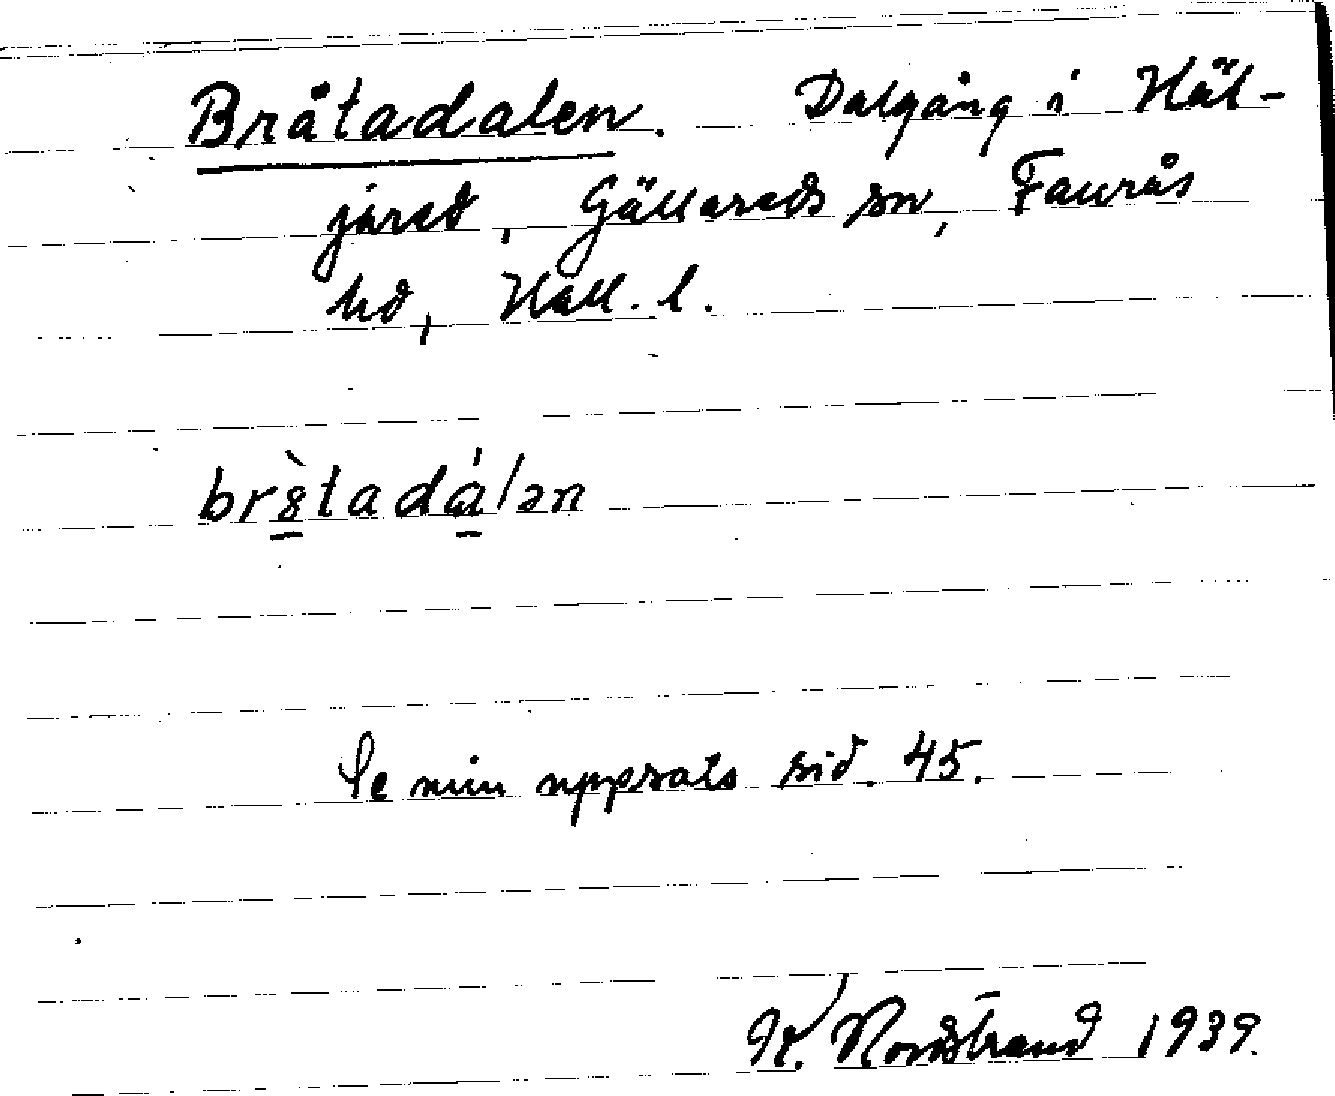 Bråtadalen. Dalgång i Häl-
jared, Gällareds sn, Faurås
hd, Hall. l.
br8̀tadálən
Se min uppsats sid. 45.
K. Nordstrand 1939.